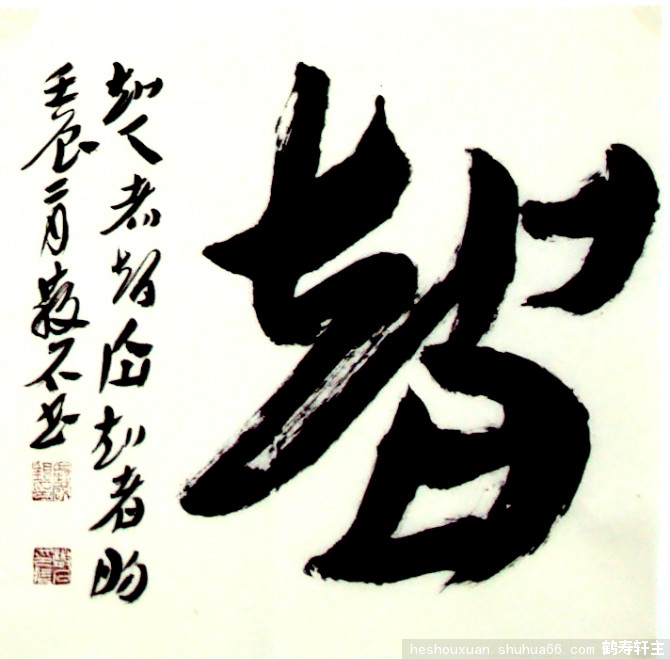 智
知人者智知者明
壬辰二月石书
heshouxuan.shuhua66.com 鹤寿轩主